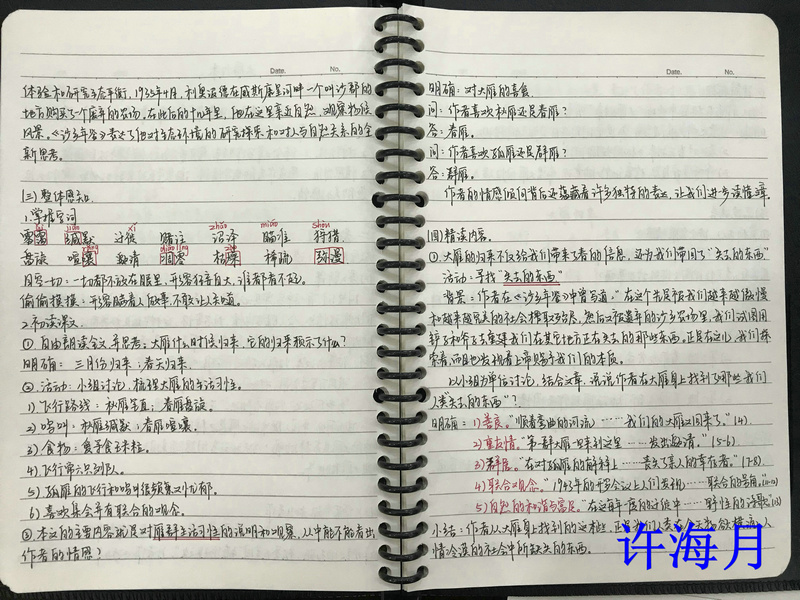 Date. No.
体验和研究生态平衡。1935年4月,利奥波德在威斯康星河畔一个叫沙郡的
地方购买了一个废弃的农场。在此后的十几年里,他在这里亲近自然,观察物候
风景。《沙乡年鉴》表达了他对生态环境的研究探索和对人与自然关系的全
新思考。
(三)整体感知
1.掌握字词
xí jiān xǐ zhǎo miáo shòu
雾霭 缄默 迁徙 赌注 沼泽 瞄准 狩猎
盘旋 喧嚷 凋零 枯燥 弥漫
目空一切:一切都不放在眼里,形容狂妄自大,谁都看不起。
偷偷摸摸:形容瞒着人做事,不敢让人知道。
2.初读课文
①自由朗读全文并思考:大雁什么时候归来,它的归来预示了什么?
明确:三月份归来;春天归来。
②活动:小组讨论,梳理大雁的生活习性。
1)飞行路线:秋雁笔直;春雁盘旋。
2)鸣叫:秋雁缄默;春雁喧嚷。
3)食物:爱寻食玉米粒。
4)飞行常六只列队。
5)孤雁的飞行和鸣叫很频繁又忧郁。
6)喜欢集会并有联合的观念。
③本文的主要内容就是对雁群生活习性的说明和观察,从中能不能看出
作者的情感?
Date. No.
明确:对大雁的喜食
问:作者喜欢秋雁还是春雁?
答:春雁。
问:作者喜欢孤雁还是群雁?
答:群雁。
作者的情感倾向背后还蕴藏着许多独特的表达,让我们进一步读懂文章。
(四)精读内容。
①大雁的归来不仅给我们带来了春的信息,还为我们带回了"失去的东西"
活动:寻找"失去的东西"
背景:作者在《沙乡年鉴》中曾写道:"在这个
和越来越
铲子和斧子去重建我们在其它地方正在失去的那些东西。正是在这儿,我们探
索着,而且也发现着上帝赐予我们的本质。
以小组为单位讨论,结合文章,说说作者在大雁身上找到了哪些我们
人类"失去的东西"?
明确:1)善良。"顺着弯曲的河流……我们的大雁又回来了。"(4)
2)重友情。"第一群大雁一旦来到这里……发出邀请。"(5-6)
3)亲情。"在对孤雁的解释上……丧失了亲人的幸存者。"(7-8)
4)联合观念。"1943年的开罗会议上人们发现……联合的号角。"
5)自然的和谐与富足。"在这每年度的迁徙中……野性的诗歌"
小结:作者从大雁身上找到的这本性,正是我们人类在
情冷漠的社会中所缺失的东西。
许海月